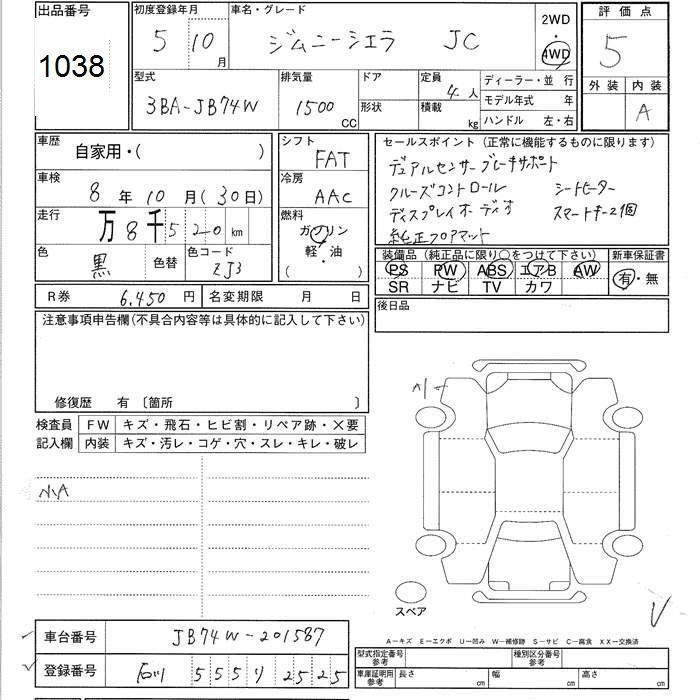 出品番号
1038
初度登録年月
5 10 月
車名・グレード
ジムニーシエラ JC
2WD
・
4WD
評価点
5
外装 内装
A
型式
3BA-JB74W
排気量
1500 CC
ドア
形状
定員
4 人
積載
kg
ディーラー・並行
モデル年式 年
ハンドル 左・右
車歴
自家用・( )
車検
8 年 10 月(30日)
走行
万 8 千 5 2 0 km
色
黒
色替
色コード
ZJ3
シフト
FAT
冷房
AAC
燃料
ガソリン
軽・油
( )
セールスポイント (正常に機能するものに限ります)
デュアルセンサーブレーキサポート
クルーズコントロール シートヒーター
ディスプレイオーディオ スマートキー2個
純正フロアマット
装備品 (純正品に限り○をつけて下さい)
PS PW ABS エアB AW
SR ナビ TV カワ
新車保証書
有・無
R券 6,450 円
名変期限 月 日
後日品
注意事項申告欄(不具合内容等は具体的に記入して下さい)
修復歴 有 〔箇所
検査員
記入欄
FW キズ・飛石・ヒビ割・リペア跡・×要
内装 キズ・汚レ・コゲ・穴・スレ・キレ・破レ
N/A
A1
スペア
A−キズ E−エクボ U−凹み W−補修跡 S−サビ C−腐食 XX−交換済
車台番号 JB74W-201587
登録番号 石川 555 り 25-25
型式指定番号
参考
種別区分番号
参考
車庫証明用
参考
長さ cm 幅 cm 高さ cm